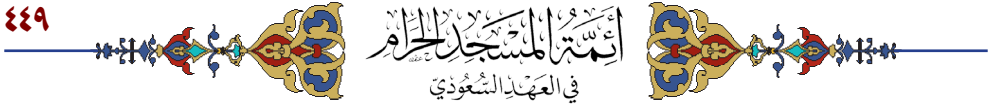 ٤٤٩
أَئِمَّةُ المَسْجِدِ الحَرَامِ
في العَهْدِ السُّعُودِيّ